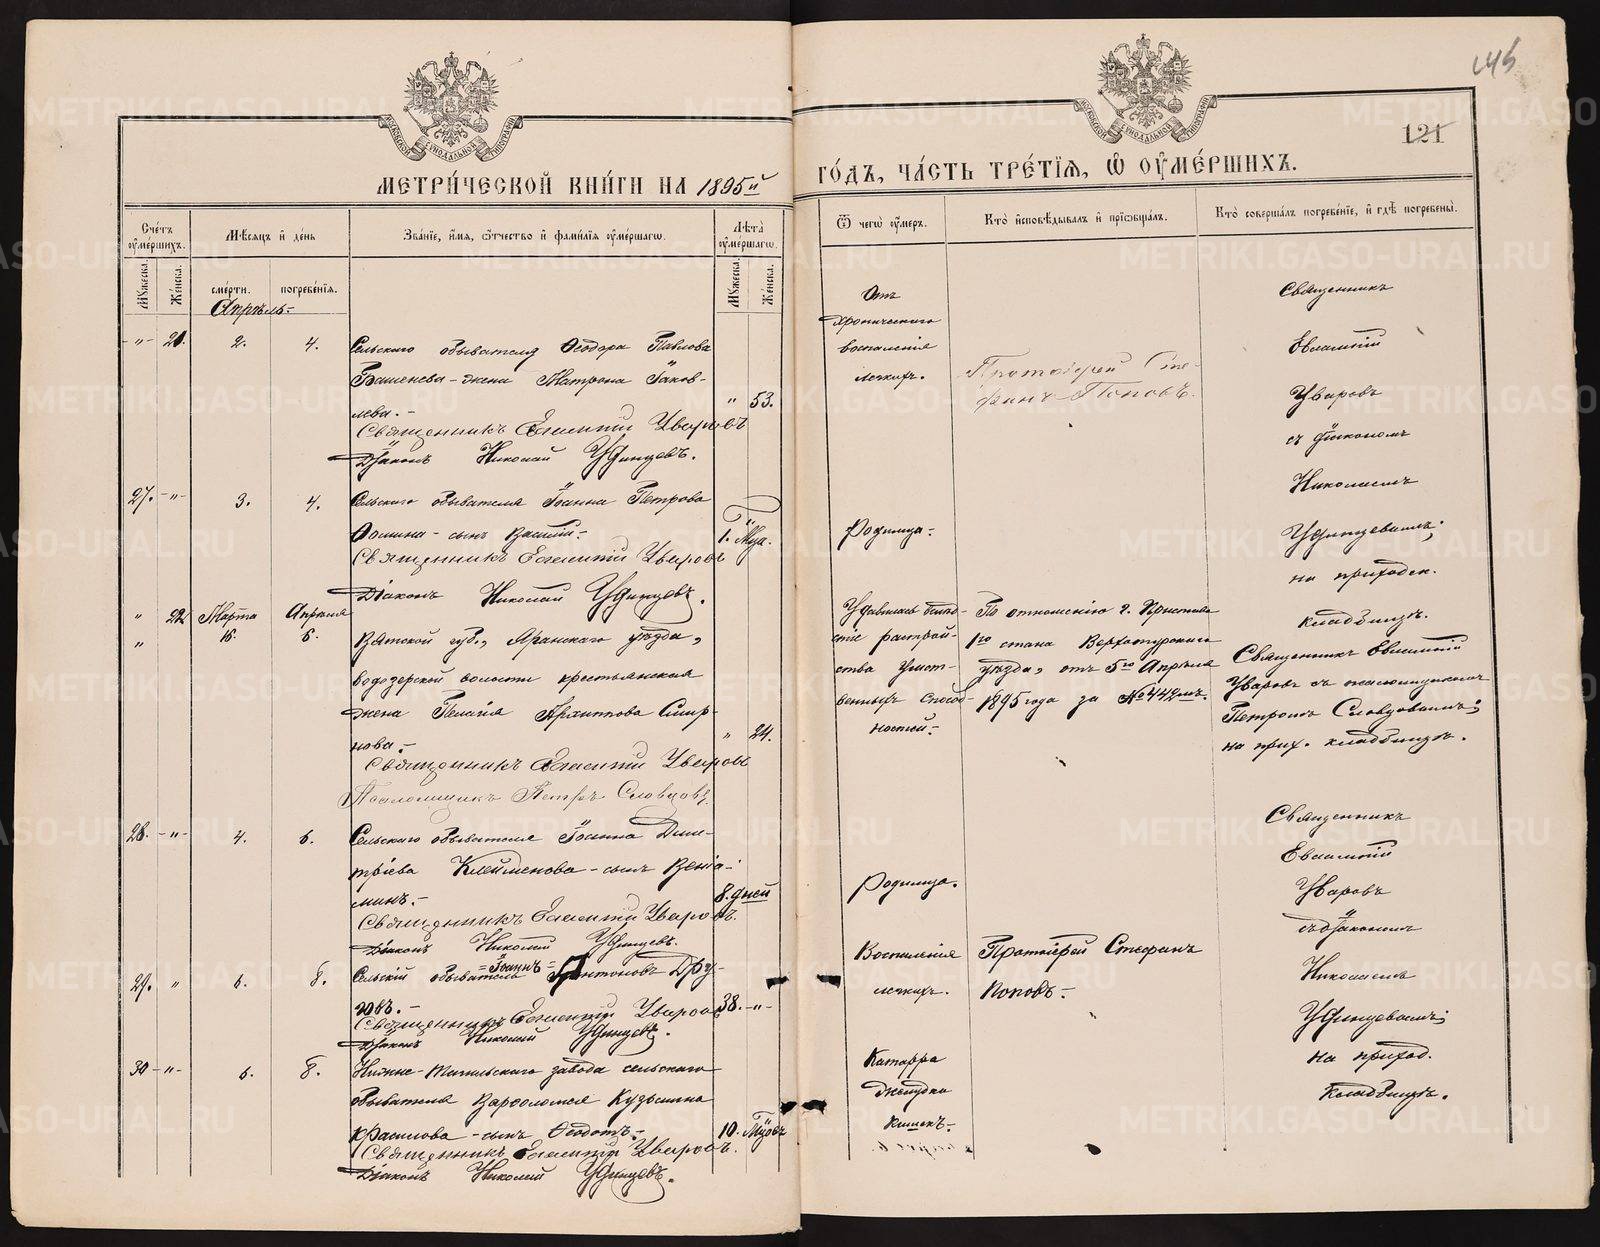 145
121
МЕТРИ́ЧЕСКОЙ КНИ́ГИ НА 1895й
ГО́ДЪ, ЧА́СТЬ ТРЕ́ТІѦ, Ѡ ОУ҆МЕ́РШИХЪ.
Сче́тъ оу҆ме́ршихъ.
Мѣ́сѧцъ и҆ де́нь
Зва́нїе, и҆́мѧ, ѻ҆́тчество и҆ фами́лїѧ оу҆ме́ршагѡ.
Лѣ́та оу҆ме́ршагѡ.
Ѿ чегѡ̀ оу҆́меръ.
Кто̀ и҆сповѣ́дывалъ и҆ прїѡбща́лъ.
Кто̀ соверша́лъ погребе́нїе, и҆ гдѣ̀ погребены̀.
Мꙋ́жеска.
Же́нска.
сме́рти.
погребе́нїѧ.
Мꙋ́жеска.
Же́нска.
Апрѣль.
-"- 21. 2. 4. Сельскаго обывателя Ѳеодора Павлова
Башенева - жена Матрона Іаков-
лева. - " 53.
Священникъ Евлампій Уваровъ
Діаконъ Николай Удинцевъ.
Отъ
хроническаго
воспаленія
легкихъ.
Протоіерей Сте-
фанъ Поповъ.
Священникъ
Евлампій
Уваровъ
съ діакономъ
Николаемъ
Удинцевымъ;
на приходск.
кладбищѣ.
27. -"- 3. 4. Сельскаго обывателя Іоанна Петрова
Ѳомина - сынъ
Священникъ Евлампій Уваровъ
Діаконъ Николай Удинцевъ.
Родимца.
" 22 Марта Апрѣля
" 6. Вятской губ., Яранскаго уѣзда,
волости крестьянская
жена Пелагія Архипова Смир-
нова. - " 24.
Священникъ Евлампій Уваровъ
Псаломщикъ Петръ Словцовъ
Удавилась
растрой-
ства умст-
венныхъ способ-
ностей.
По отношенію г. Пристава
1го стана Верхотурскаго
уѣзда, отъ 5го Апрѣля
1895 года за № 442мъ.
Священникъ Евлампій
Уваровъ съ псаломщикомъ
Петромъ Словцовымъ;
на прих. кладбищѣ.
28. -"- 4. 6. Сельскаго обывателя Іоанна Дми-
тріева Клейменова - сынъ Веніа-
минъ. - 8. дней
Священникъ Евлампій Уваровъ.
Діаконъ Николай Удинцевъ.
Родимца.
Священникъ
Евлампій
Уваровъ
съ діакономъ
Николаемъ
Удинцевымъ;
на приход.
кладбищѣ.
29. " 6. 8. Сельскій обыватель =Іоаннъ= Антоновъ
38. -"-
Священникъ Евлампій Уваровъ
Діаконъ Николай Удинцевъ.
Воспаленія
легкихъ.
Протоіерей Стефанъ
Поповъ. -
30 -"- 6. 8. Нижне-Тагильскаго завода сельскаго
обывателя Варѳоломея Кузьмина
Красилова - сынъ Ѳеодотъ. - 10.
Священникъ Евлампій Уваровъ.
Діаконъ Николай Удинцевъ.
Катарра
желудка
кишекъ.
METRIKI.GASO-URAL.RU